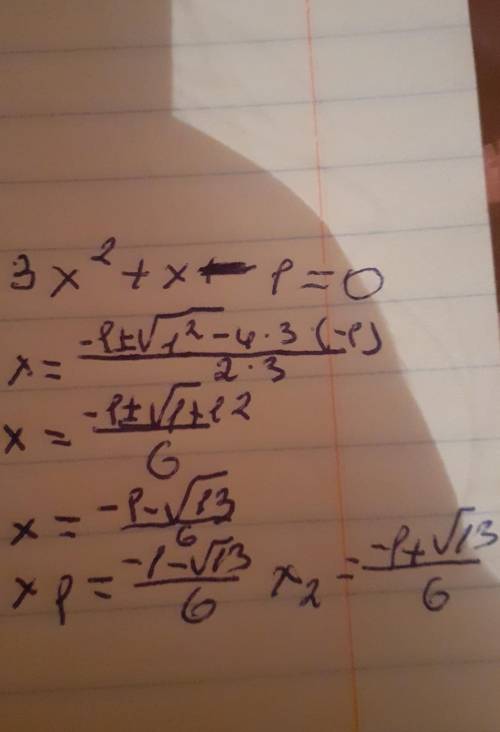 3x² + x - 1 = 0
x = (-1 ± √(1² - 4 · 3 · (-1))) / (2 · 3)
x = (-1 ± √(1 + 12)) / 6
x = (-1 - √13) / 6
x1 = (-1 - √13) / 6 x2 = (-1 + √13) / 6